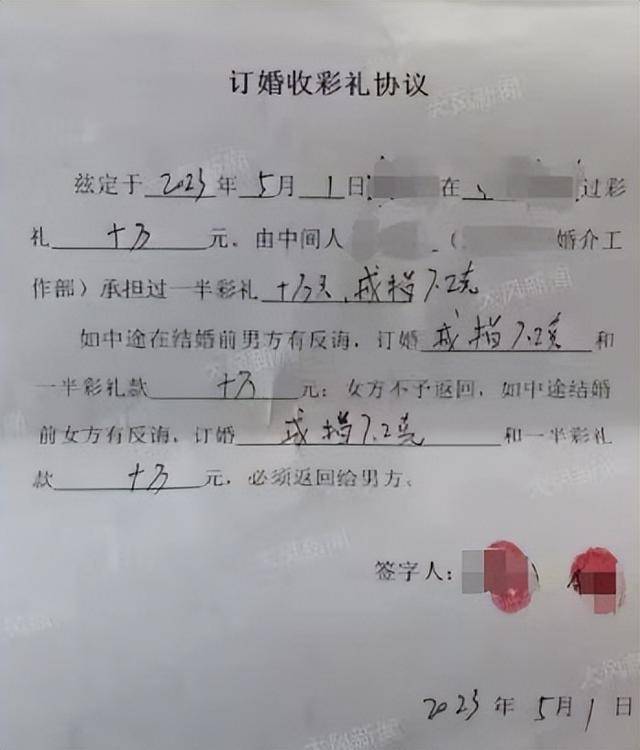 订婚收彩礼协议
兹定于 2023 年 5月 1 日 在 过彩
礼 十万 元。由中间人 （ 婚介工
作部）承担过一半彩礼 十万元，戒指7.2克
如中途在结婚前男方有反诲，订婚 戒指7.2克 和
一半彩礼款 十万 元；女方不予返回，如中途结婚
前女方有反诲，订婚 戒指7.2克 和一半彩礼
款 十万 元，必须返回给男方、
签字人：
2023 年 5月 1 日